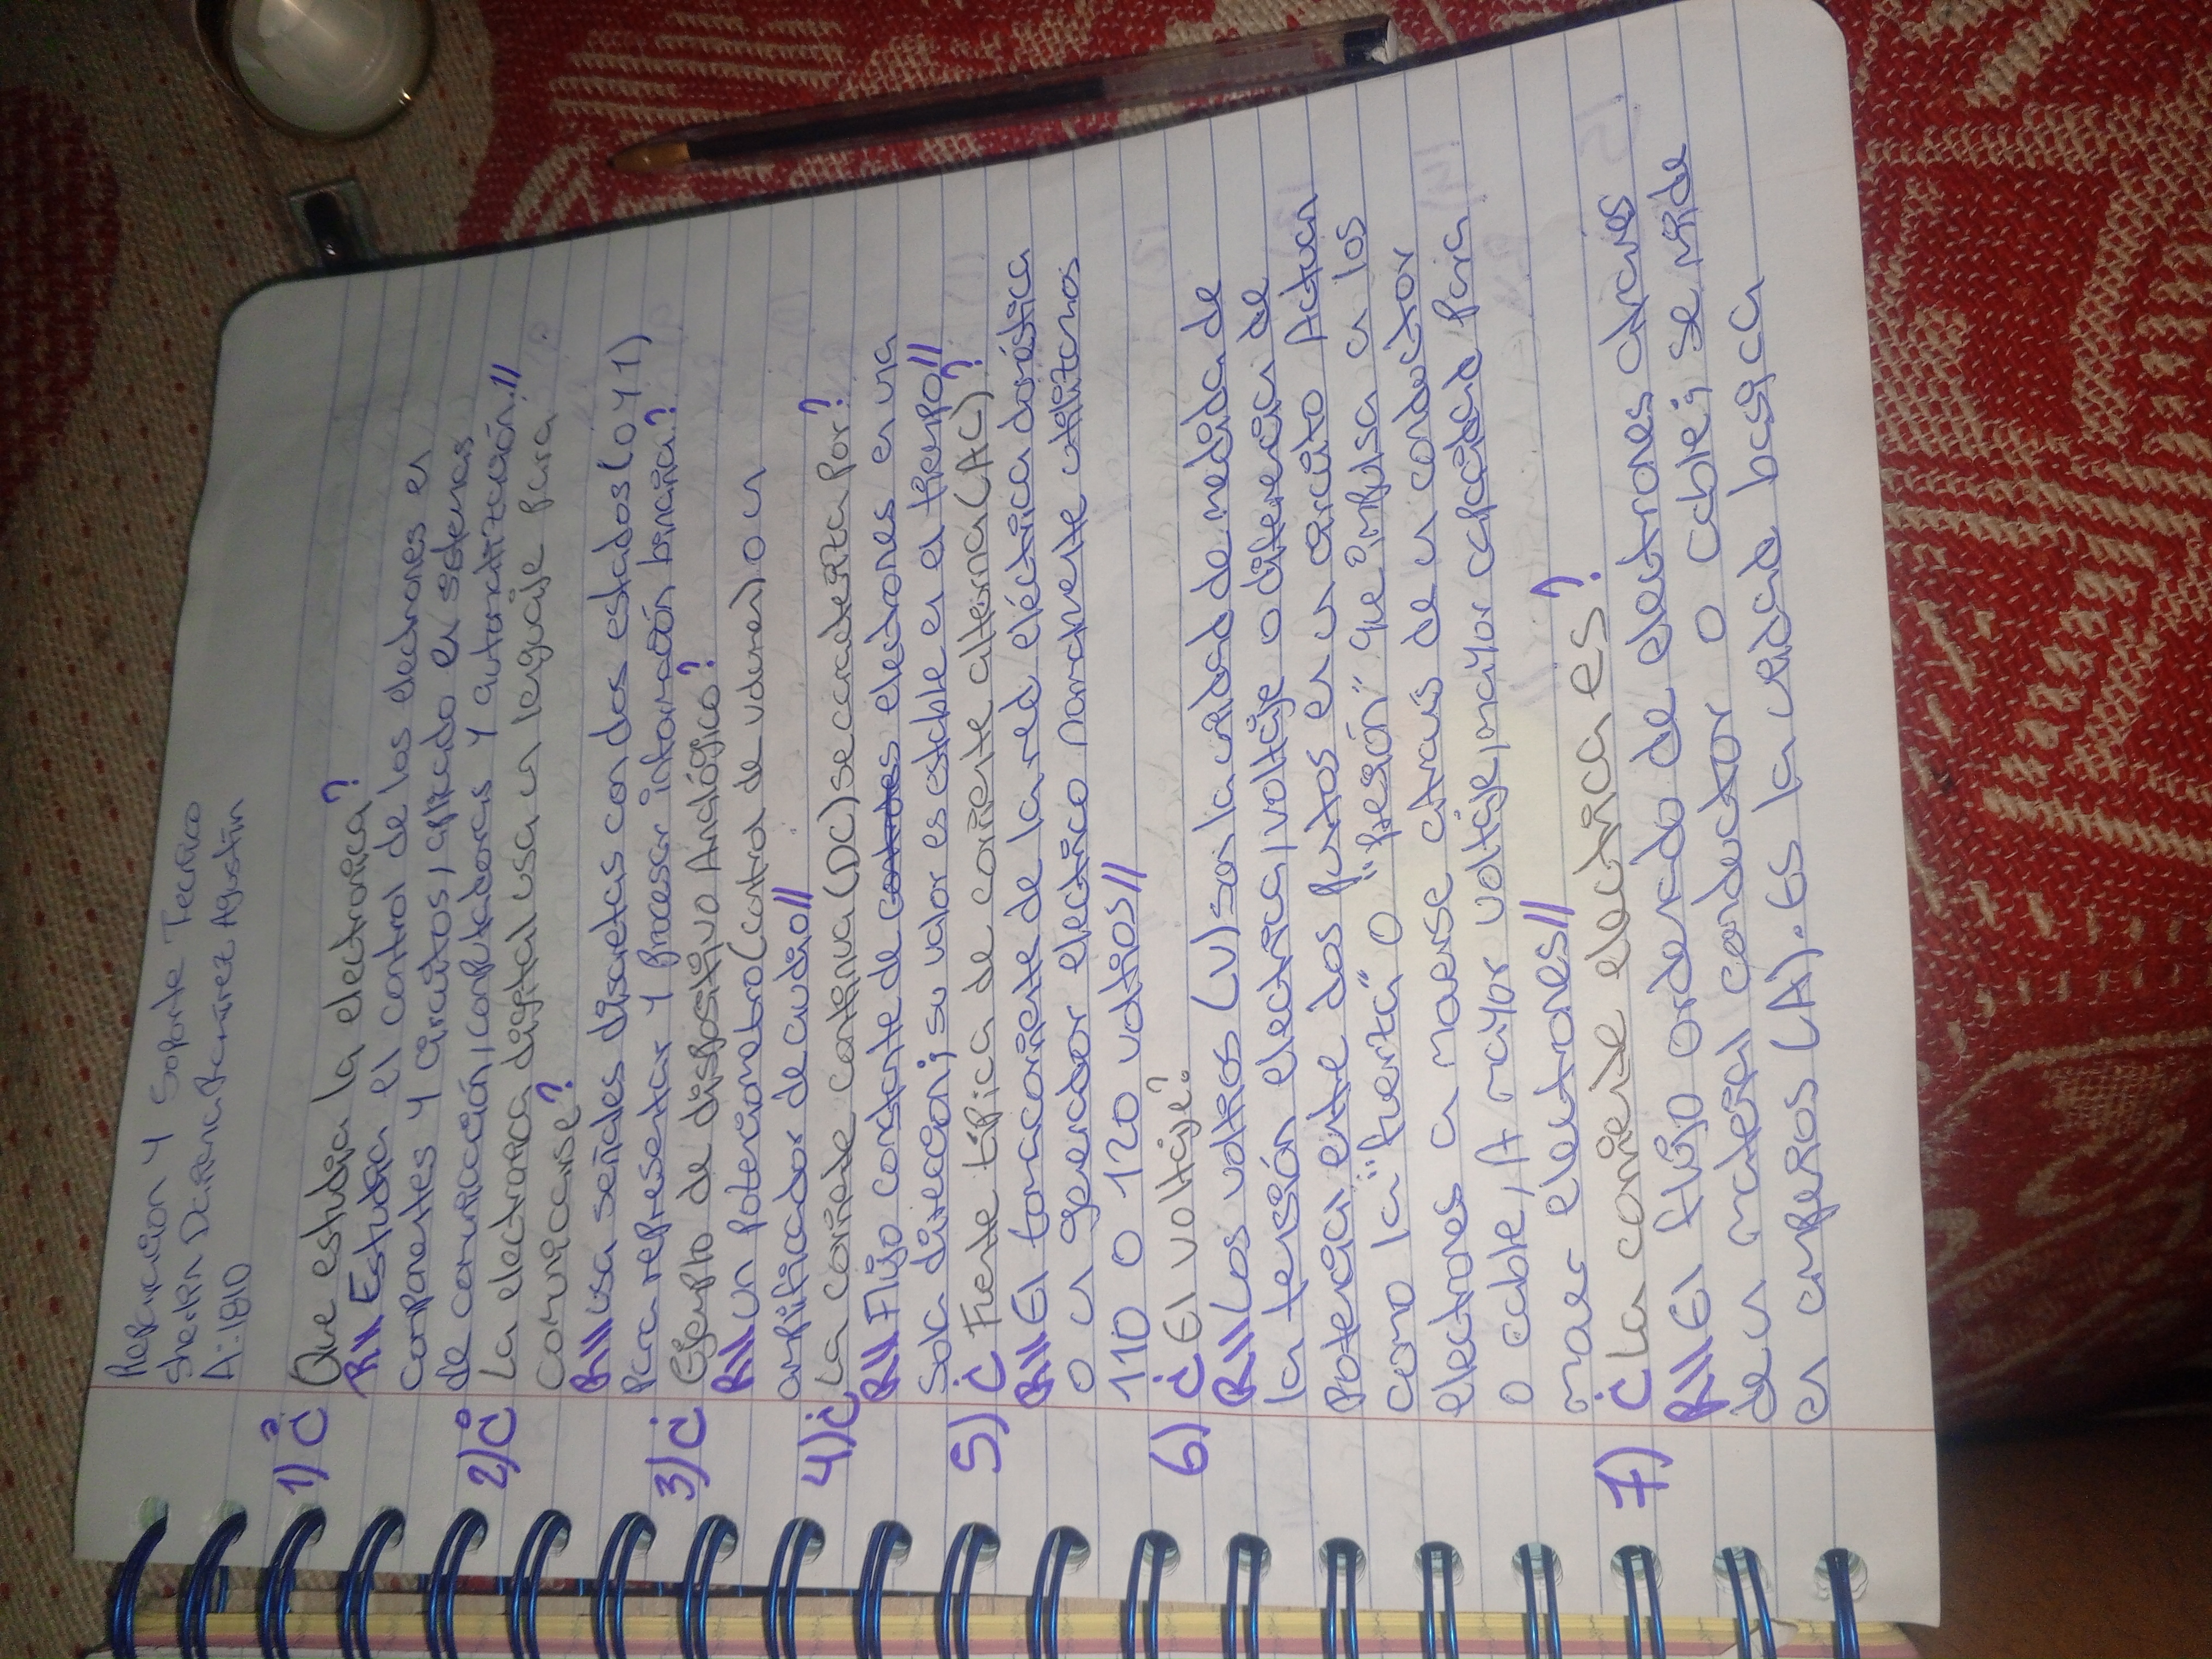 Reparacion y Soporte Tecnico
Sherlin Daniana Ramirez Agustin
A:-1810
1) ¿Que estudia la electronica?
R// Estudia el control de los electrones en
componentes y circuitos, aplicado en sistemas
de comunicación, computadoras y automatización.//
2) ¿La electronica digital usa un lenguaje para
comunicarse?
R// usa señales discretas con dos estados (0 y 1)
para representar y procesar información binaria?
3) ¿Ejemplo de dispositivo Analógico?
R// un potenciometro (control de volumen) o un
amplificador de audio//
4) ¿La coriente continua (DC) se caracteriza por?
R// Flijo constante de electrones en una
sola direccion; su valor es estable en el tiempo//
5) ¿Fuente típica de coriente alterna (AC)?
R// El tomacoriente de la red eléctrica doméstica
o un generador electrico normalmente utilizamos
110 0 120 voltios//
6) ¿El voltaje?
R// Los voltios (v) son la unidad de medida de
la tensión electrica, voltaje o diferencia de
Potencial entre dos puntos en un circuito Actuan
como la "fuerza" o "presión" que impulsa a los
electrones a moverse atraves de un conductor
o cable, A mayor voltaje, mayor capacidad para
mover electrones//
7) ¿La coriente electrica es?
R// El flujo ordenado de electrones atraves
de un material conductor o cable; se mide
en amperios (A). Es la unidad basica